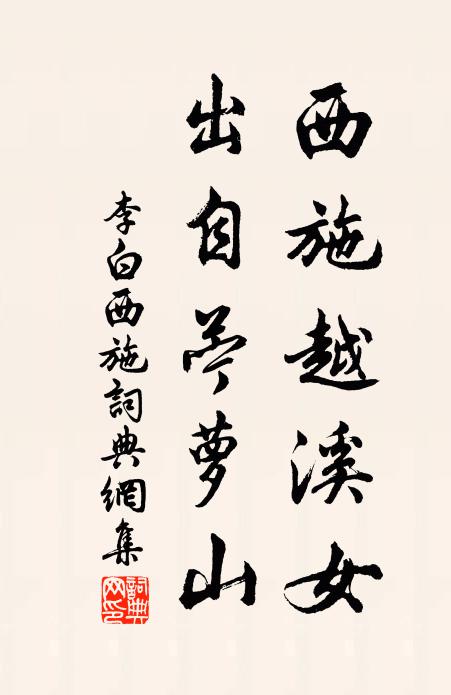 西施越溪女
出自苧萝山
李白西施詞典網集
詞典
网印